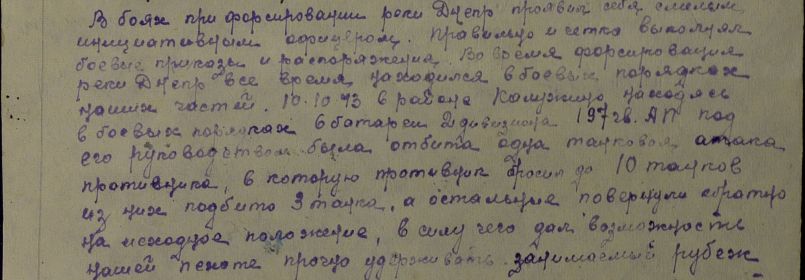 В боях при форсировании реки Днепр проявил себя смелым
инициативным офицером. Правильно и четко выполнял
боевые приказы и распоряжения. Во время форсирования
реки Днепр все время находился в боевых порядках
наших частей. 10.10.43 в районе Калужино находясь
в боевых порядках 6 батареи 2 дивизиона 197 гв. АП под
его руководством была отбита одна танковая атака
противника, в которую противник бросил до 10 танков
из них подбито 3 танка, а остальные повернули обратно
на исходное положение, в силу чего дал возможность
нашей пехоте прочно удерживать занимаемый рубеж